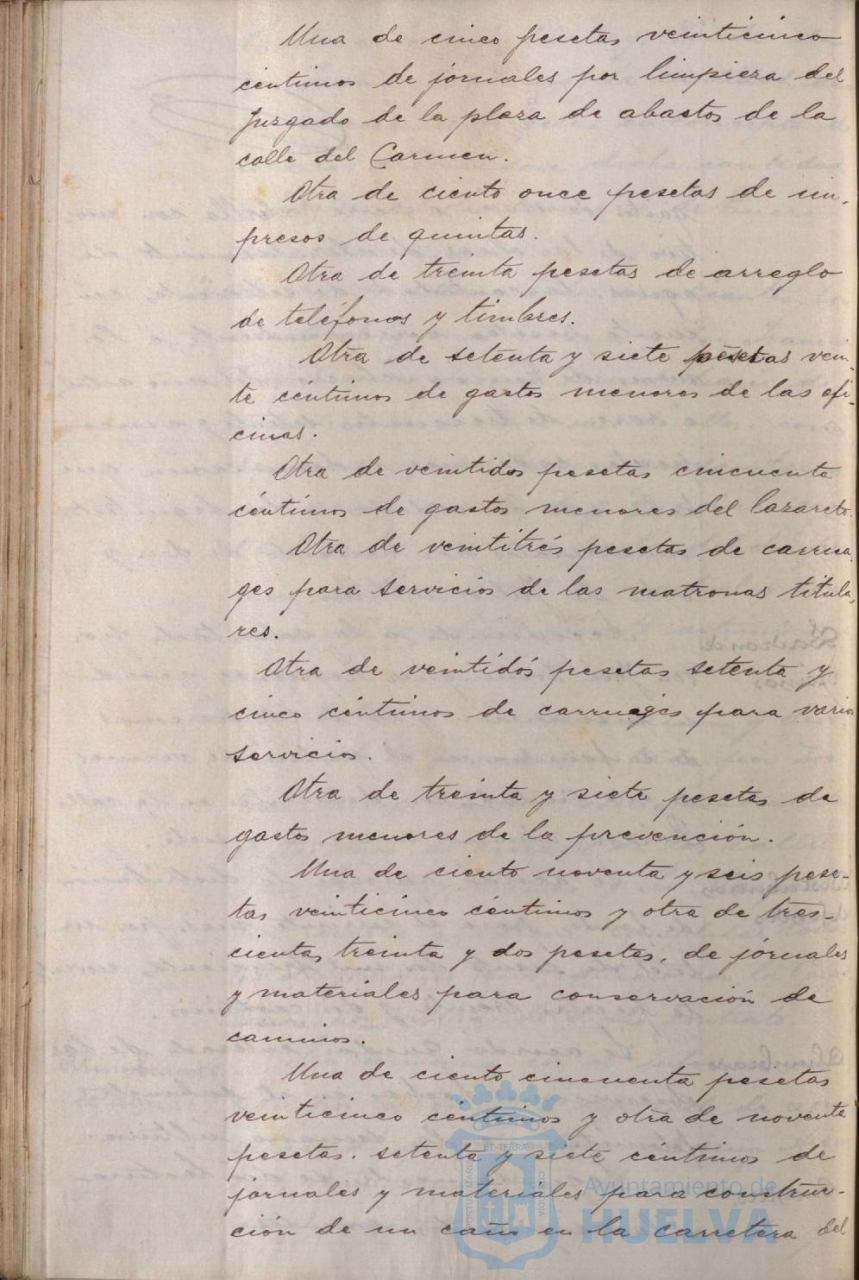 Una de cinco pesetas veinticinco
céntimos de jornales por limpieza del
Juzgado de la plaza de abastos de la
calle del Carmen.
Otra de ciento once pesetas de im-
presos de quintas.
Otra de treinta pesetas de arreglo
de teléfonos y timbres.
Otra de setenta y siete pesetas vein-
te céntimos de gastos menores de las ofi-
cinas.
Otra de veintidos pesetas cincuenta
céntimos de gastos menores del lazareto.
Otra de veintitrés pesetas de carrua-
ges para servicios de las matronas titula-
res.
Otra de veintidós pesetas setenta y
cinco céntimos de carruages para varios
servicios.
Otra de treinta y siete pesetas de
gastos menores de la prevención.
Una de ciento noventa y seis pese-
tas veinticinco céntimos y otra de tres-
cientas treinta y dos pesetas, de jornales
y materiales para conservación de
caminos.
Una de ciento cincuenta pesetas
veinticinco céntimos y otra de noventa
pesetas. setenta y siete céntimos de
jornales y materiales para construc-
ción de un caño en la carretera del
Ayuntamiento de
HUELVA